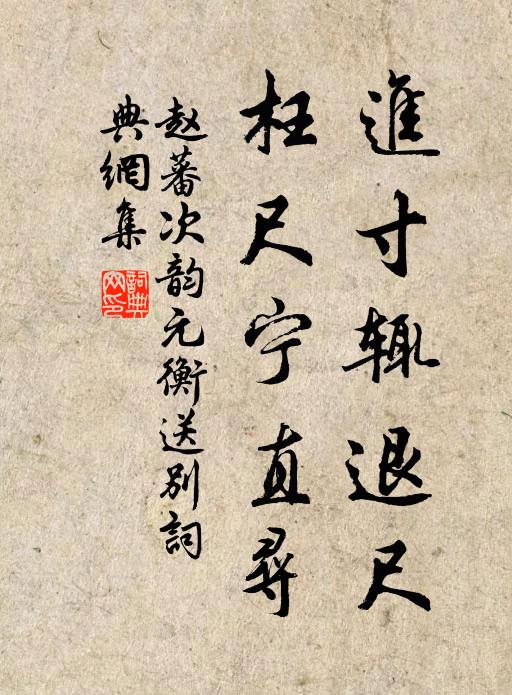 進寸辄退尺
枉尺宁直尋
赵蕃次韵元衡送别詞
典網集
詞典网印